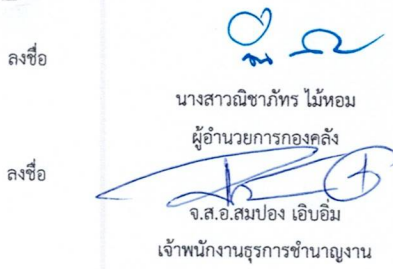 ลงชื่อ
นางสาวณิชาภัทร ไม้หอม
ผู้อำนวยการกองคลัง
ลงชื่อ
จ.ส.อ.สมปอง เอิบอิ่ม
เจ้าพนักงานธุรการชำนาญงาน